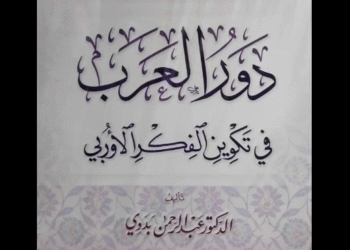 دَوْرُ العَرَب
في تكوين الفِكْرِ الأوُرُبي
تأليف
الدكتور عبد الرحمن بدوي